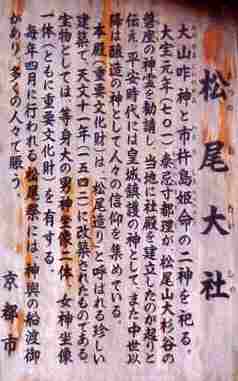 松尾大社
大山咋神と市杵島姫命の二神を祀る。
大宝元年(七〇一)秦忌寸都理が松尾山大杉谷の
磐座の神霊を勧請し、当地に社殿を建立したのが起りと
伝え、平安時代には皇城鎮護の神として、また中世以
降は醸造の神として人々の信仰を集めている。
本殿(重要文化財)は、「松尾造り」と呼ばれる珍しい
建築で、天文十一年(一五四二)に改築されたものである。
宝物としては、等身大の男神坐像二体、女神坐像
一体(ともに重要文化財)を有する。
毎年四月に行われる松尾祭には、神輿の船渡御
があり、多くの人々で賑う。
京都市